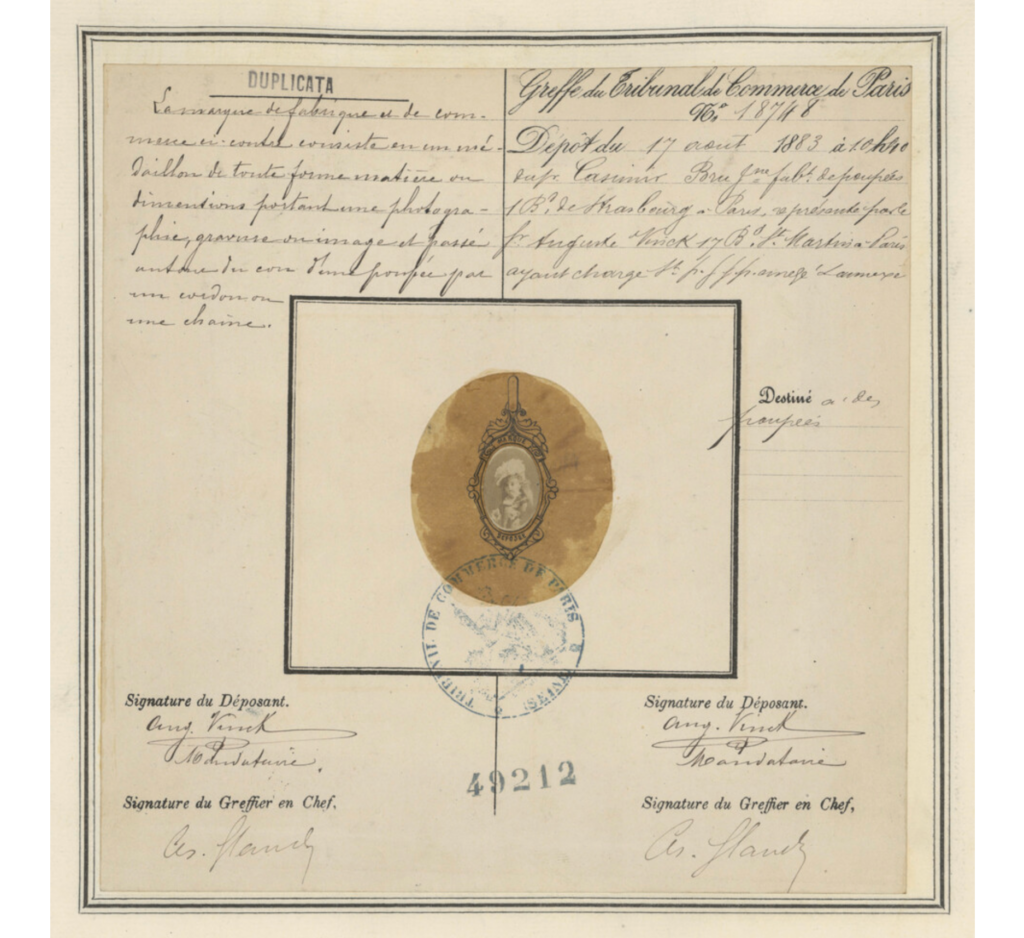 DUPLICATA
La marque de fabrique et de com-
merce ci-contre consiste en un mé-
daillon de toute forme matière ou
dimentions portant une photogra-
phie, gravure ou image et passé
autour du cou d'une poupée par
un cordon ou
une chaine.
Greffe du Tribunal de Commerce de Paris
N.° 18748
Dépôt du 17 aout 1883 à 10h40
Casimir Bru Jne fabt. de poupées
1 Bd. de Strasbourg a Paris, représenté par le
Sr. Auguste Vinck 17 Bd. St. Martin a Paris
ayant charge
Destiné a des
poupées
TRIBVNAL DE COMMERCE DE PARIS
Signature du Déposant.
Aug. Vinck
Mandataire.
Signature du Greffier en Chef,
49212
Signature du Déposant.
Aug. Vinck
Mandataire
Signature du Greffier en Chef,